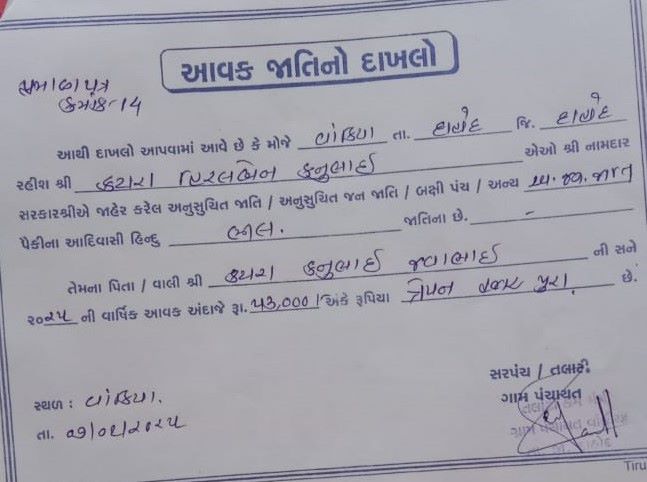 આવક જાતિનો દાખલો
પ્રમાણપત્ર
ક્રમાંક-14
આથી દાખલો આપવામાં આવે છે કે મોજે વાંકિયા તા. દાહોદ જિ. દાહોદ
રહીશ શ્રી કટારા કનુભાઈ એઓ શ્રી નામદાર
સરકારશ્રીએ જાહેર કરેલ અનુસુચિત જાતિ / અનુસુચિત જન જાતિ / બક્ષી પંચ / અન્ય અ.જ.જાત
પૈકીના આદિવાસી હિન્દુ ભીલ. જાતિના છે. -
તેમના પિતા / વાલી શ્રી કટારા કનુભાઈ જવાભાઈ ની સને
૨૦૨૫ ની વાર્ષિક આવક અંદાજે રૂા. ૫૩,૦૦૦/ અંકે રૂપિયા ત્રેપન હજાર પુરા. છે.
સરપંચ / તલાટી
ગામ પંચાયત
સ્થળ : વાંકિયા.
તા.
Tiru